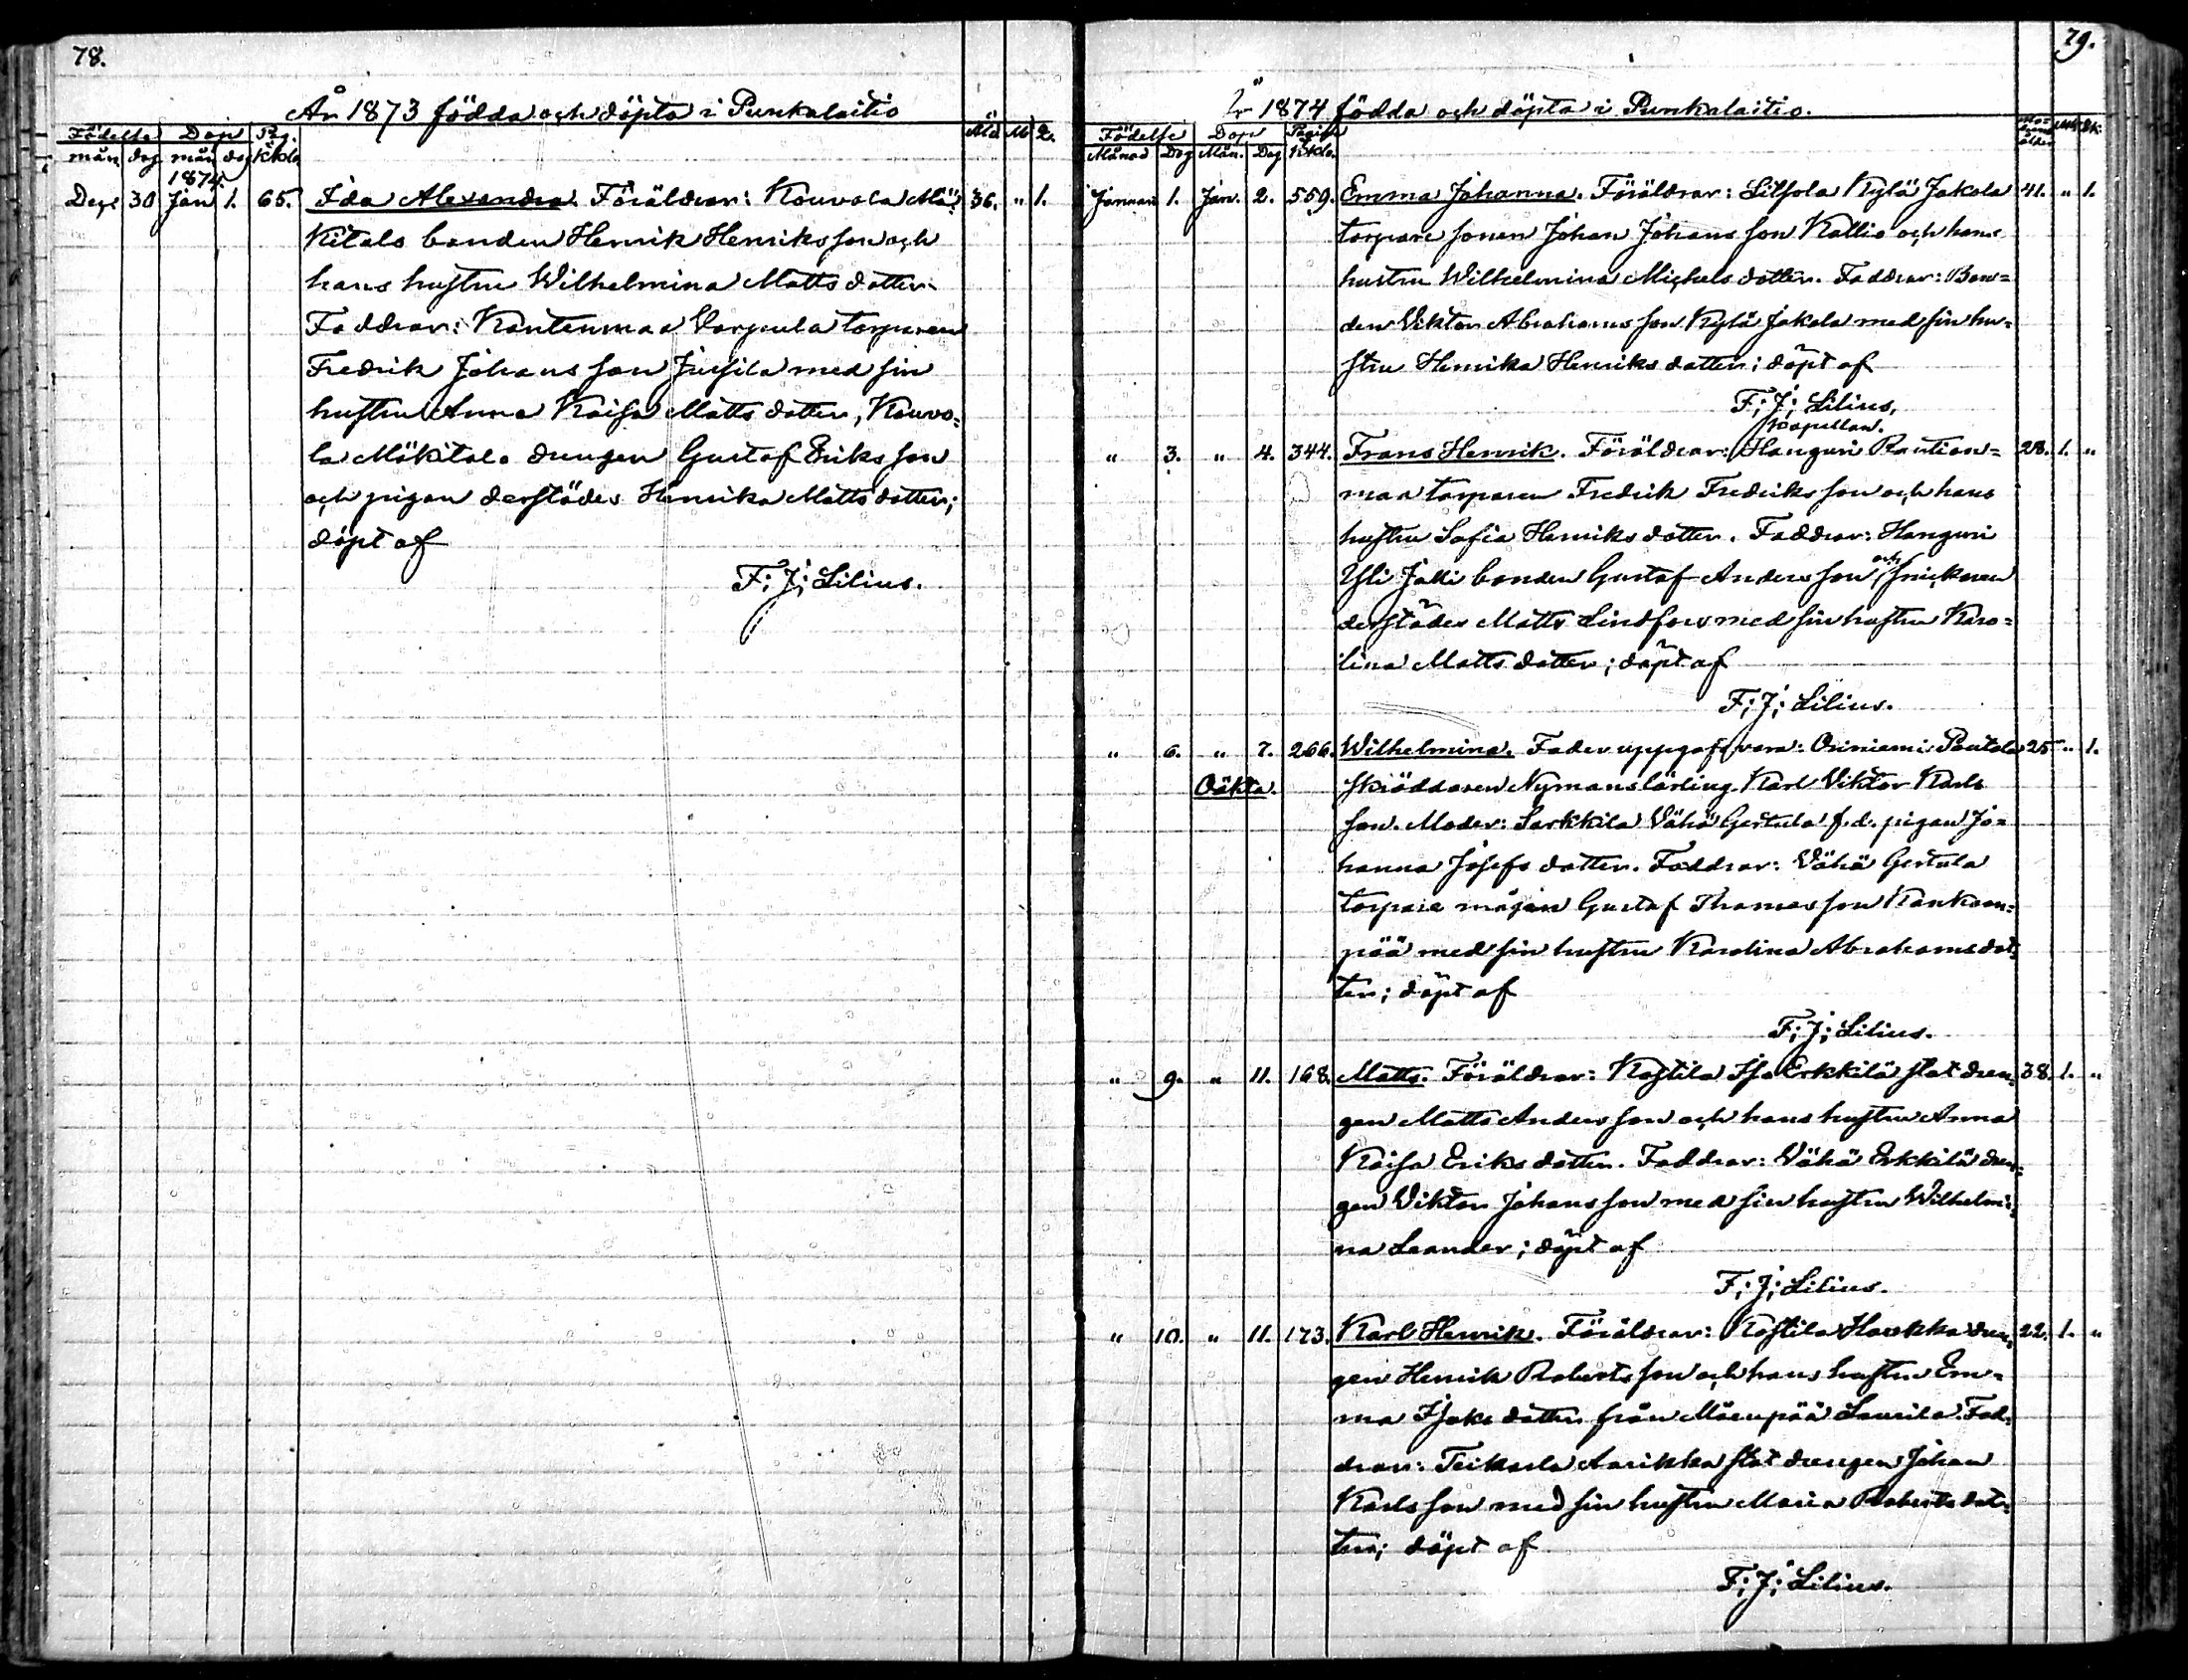 78.
År 1873 födda och döpta i Punkalaitio
Födelse Dop Pag. Må M Q.
mån dag mån dag kkbkn
1874.
Decr 30 Jan 1. 65. Ida Alexandra. Föräldrar: Kouvola Mä= 36. " 1.
kitalo bonden Henrik Henriksson och
hans hustru Wilhelmina Mattsdotter.
Faddrar: Kantenmaa Varpula torparen
Fredrik Johansson Jussila med sin
hustru Anna Kaisa Mattsdotter, Kouvo=
la Mäkitalo drengen Gustaf Eriksson
och pigan derstädes Henrika Mattsdotter;
döpt af
F; J; Lilius.
79.
År 1874 födda och döpta i Punkalaitio.
Födelse Dop Pagina
Månad Dag Mån. Dag Kkbkn.
Januari 1. Jan. 2. 559. Emma Johanna. Föräldrar: Liisola Kylä Jakola 41. " 1.
torpare sonen Johan Johansson Kallio och hans
hustru Wilhelmina Michelsdotter. Faddrar: Bon=
den Viktor Abrahamsson Kylä Jakola med sin hu=
stru Henrika Henriksdotter; döpt af
F; J; Lilius,
kapellan.
" 3. " 4. 344. Frans Henrik. Föräldrar: Hanguri Rautian= 28. 1. "
maa torparen Fredrik Fredriksson och hans
hustru Sofia Henriksdotter. Faddrar: Hanguri
Yli Jalli bonden Gustaf Andersson och snickaren
derstädes Matts Lindfors med sin hustru Karo=
lina Mattsdotter; döpt af
F; J; Lilius.
" 6. " 7. 266. Wilhelmina. Fader uppgafs vara: Oriniemi Pautola 25 " 1.
Oäkta. skräddaren Nymans lärling Karl Viktor Karls
son. Moder: Sarkkila Vähä Gertula f.d. pigan Jo=
hanna Josefsdotter. Faddrar: Vähä Gertula
torpare mågen Gustaf Thomasson Kankaan=
pää med sin hustru Karolina Abrahamsdot=
ter; döpt af
F; J; Lilius.
" 9. " 11. 168. Matts. Föräldrar: Kostila Iso Erkkilä statdren= 38. 1. "
gen Matts Andersson och hans hustru Anna
Kaisa Eriksdotter. Faddrar: Vähä Erkkilä dren=
gen Viktor Johansson med sin hustru Wilhelmi=
na Leander; döpt af
F; J; Lilius.
" 10. " 11. 173. Karl Henrik. Föräldrar: Kostila Haukka dren= 22. 1. "
gen Henrik Robertsson och hans hustru Em=
ma Isaksdotter från Mäenpää Laurila. Fad=
drar: Teikarla Aarikka statdrengen Johan
Karlsson med sin hustru Maria Robertsdot=
ter; döpt af
F; J; Lilius.